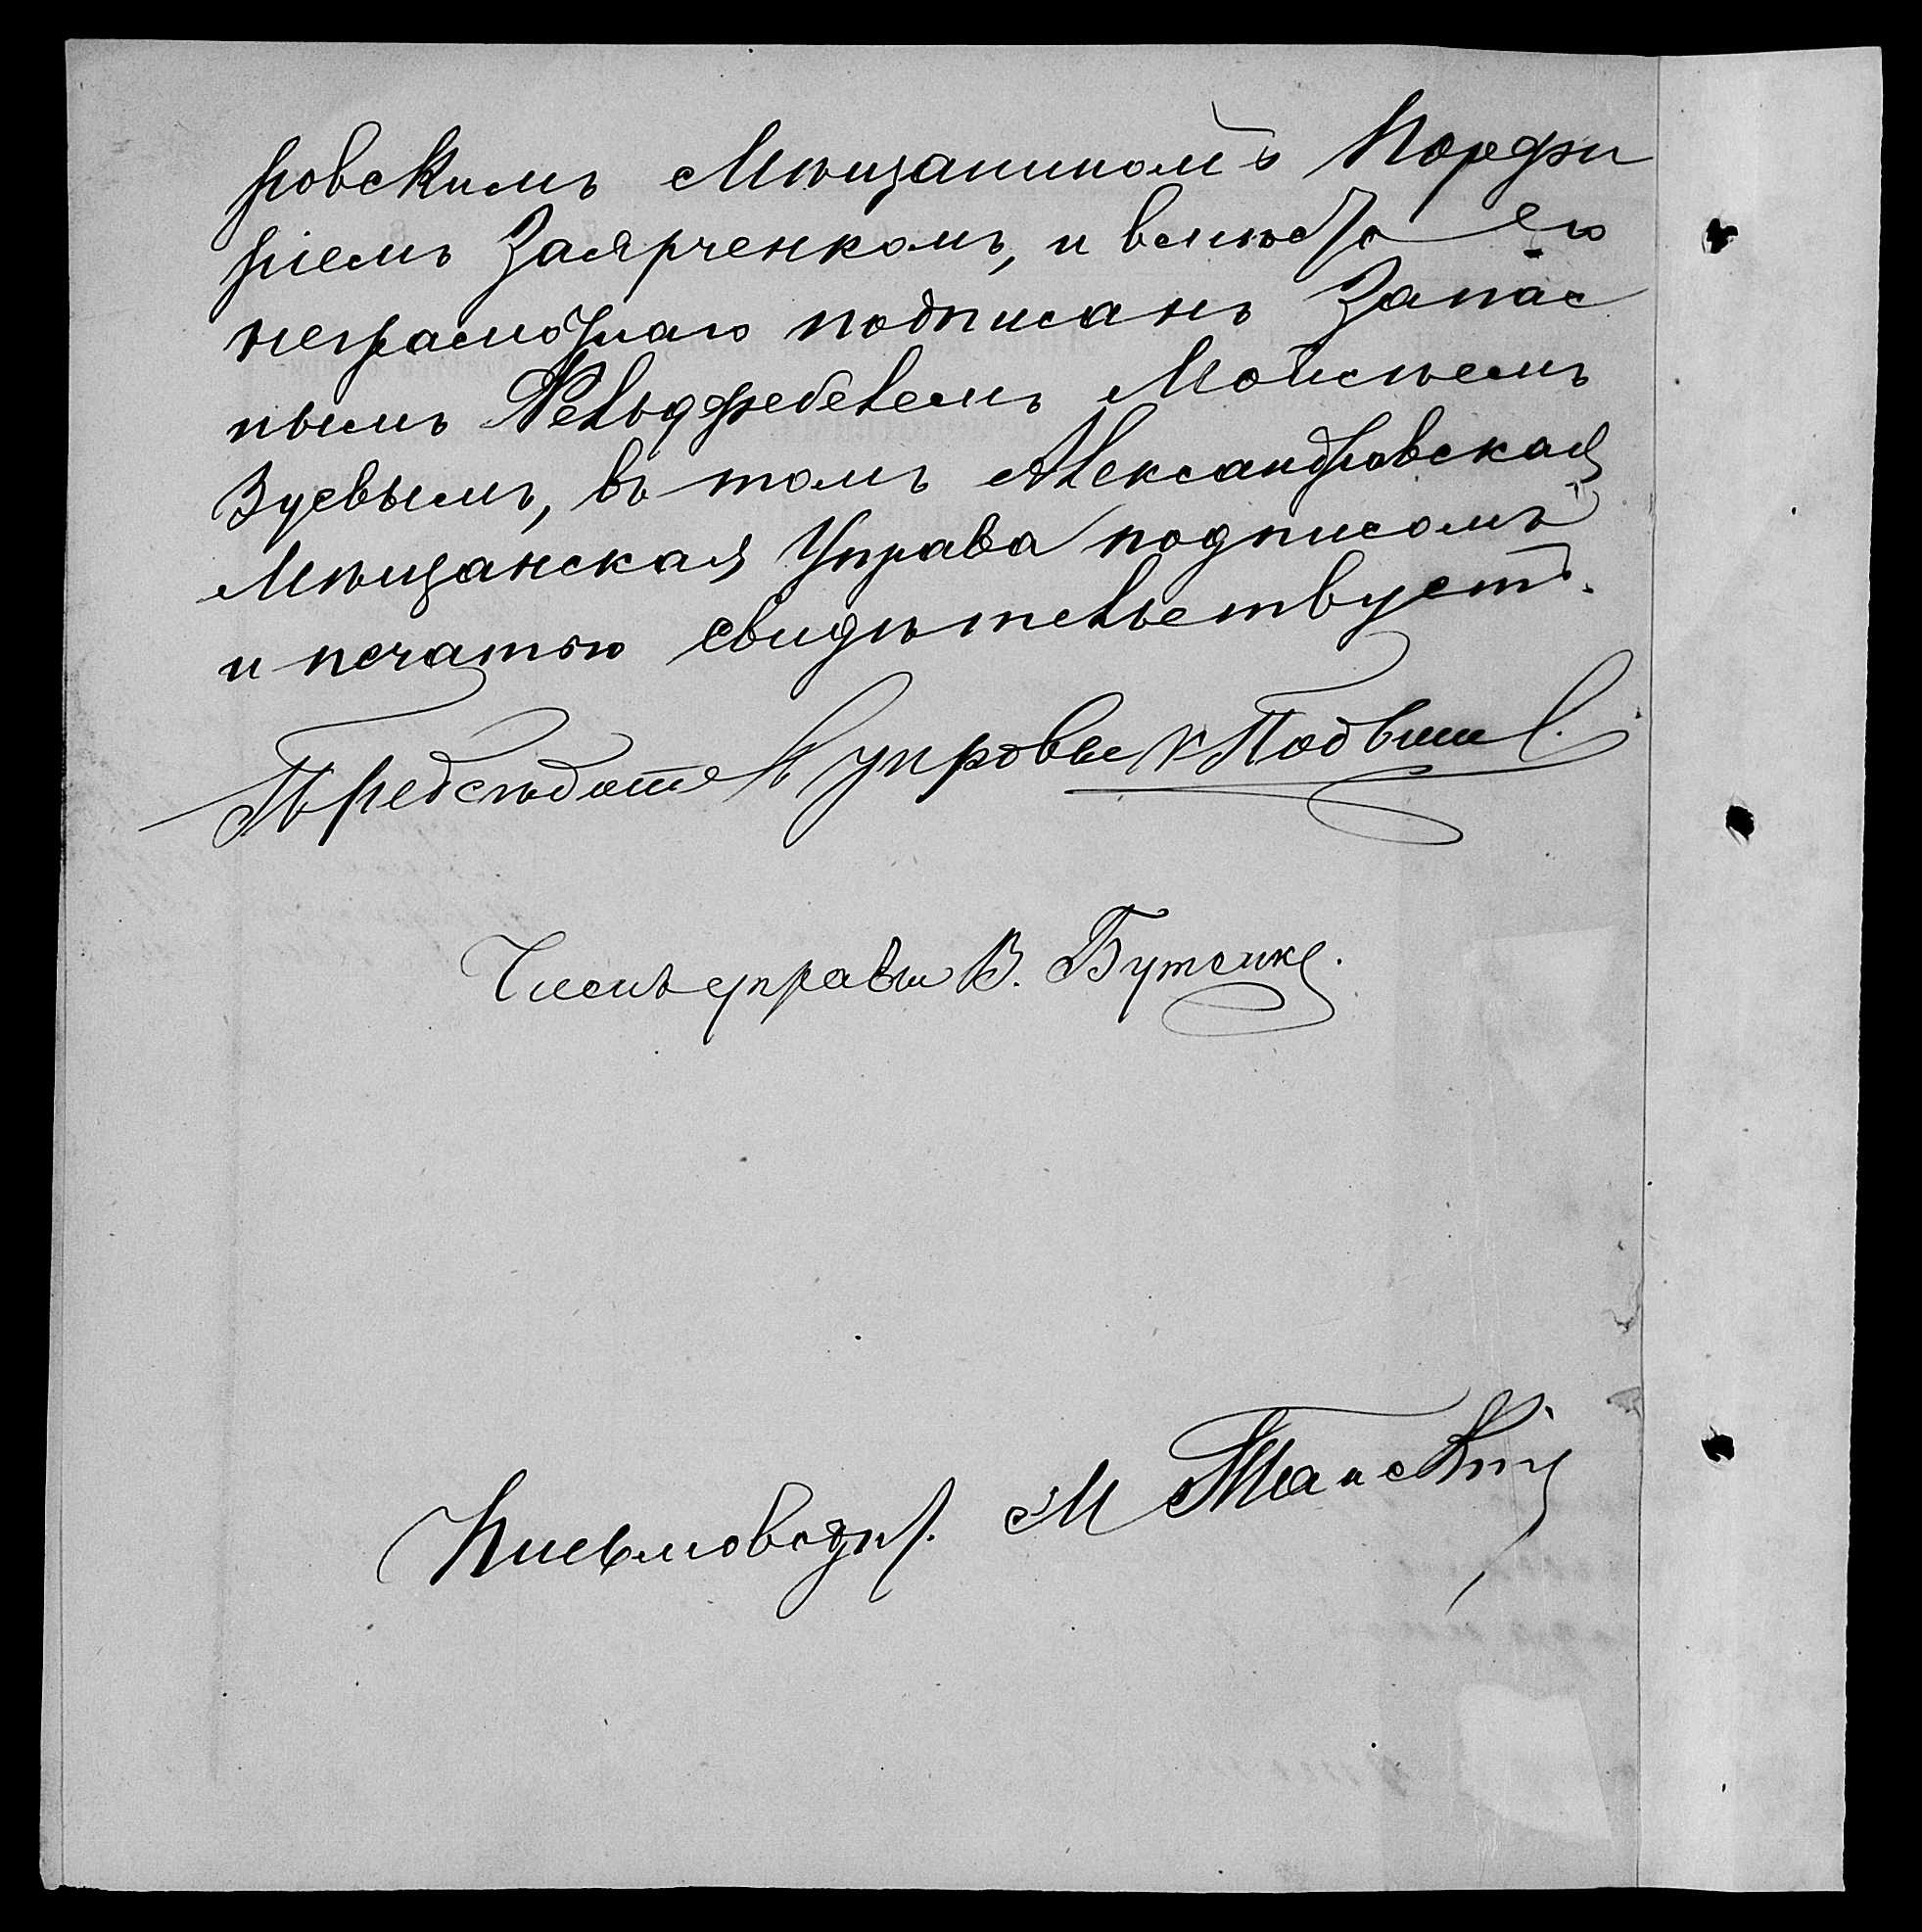 ровскимъ Мѣщаниномъ Порфи
ріемъ Заярченкомъ, и вмѣсто его
неграмотнаго подписанъ Запас
нымъ Фельдфебелемъ Моисѣемъ
Зуевымъ, въ томъ Александровская
Мѣщанская Управа подписомъ
и печатью свидѣтельствуетъ.
Предсѣдатель управы
Членъ управы В. Бутенко.
Письмоводит. М